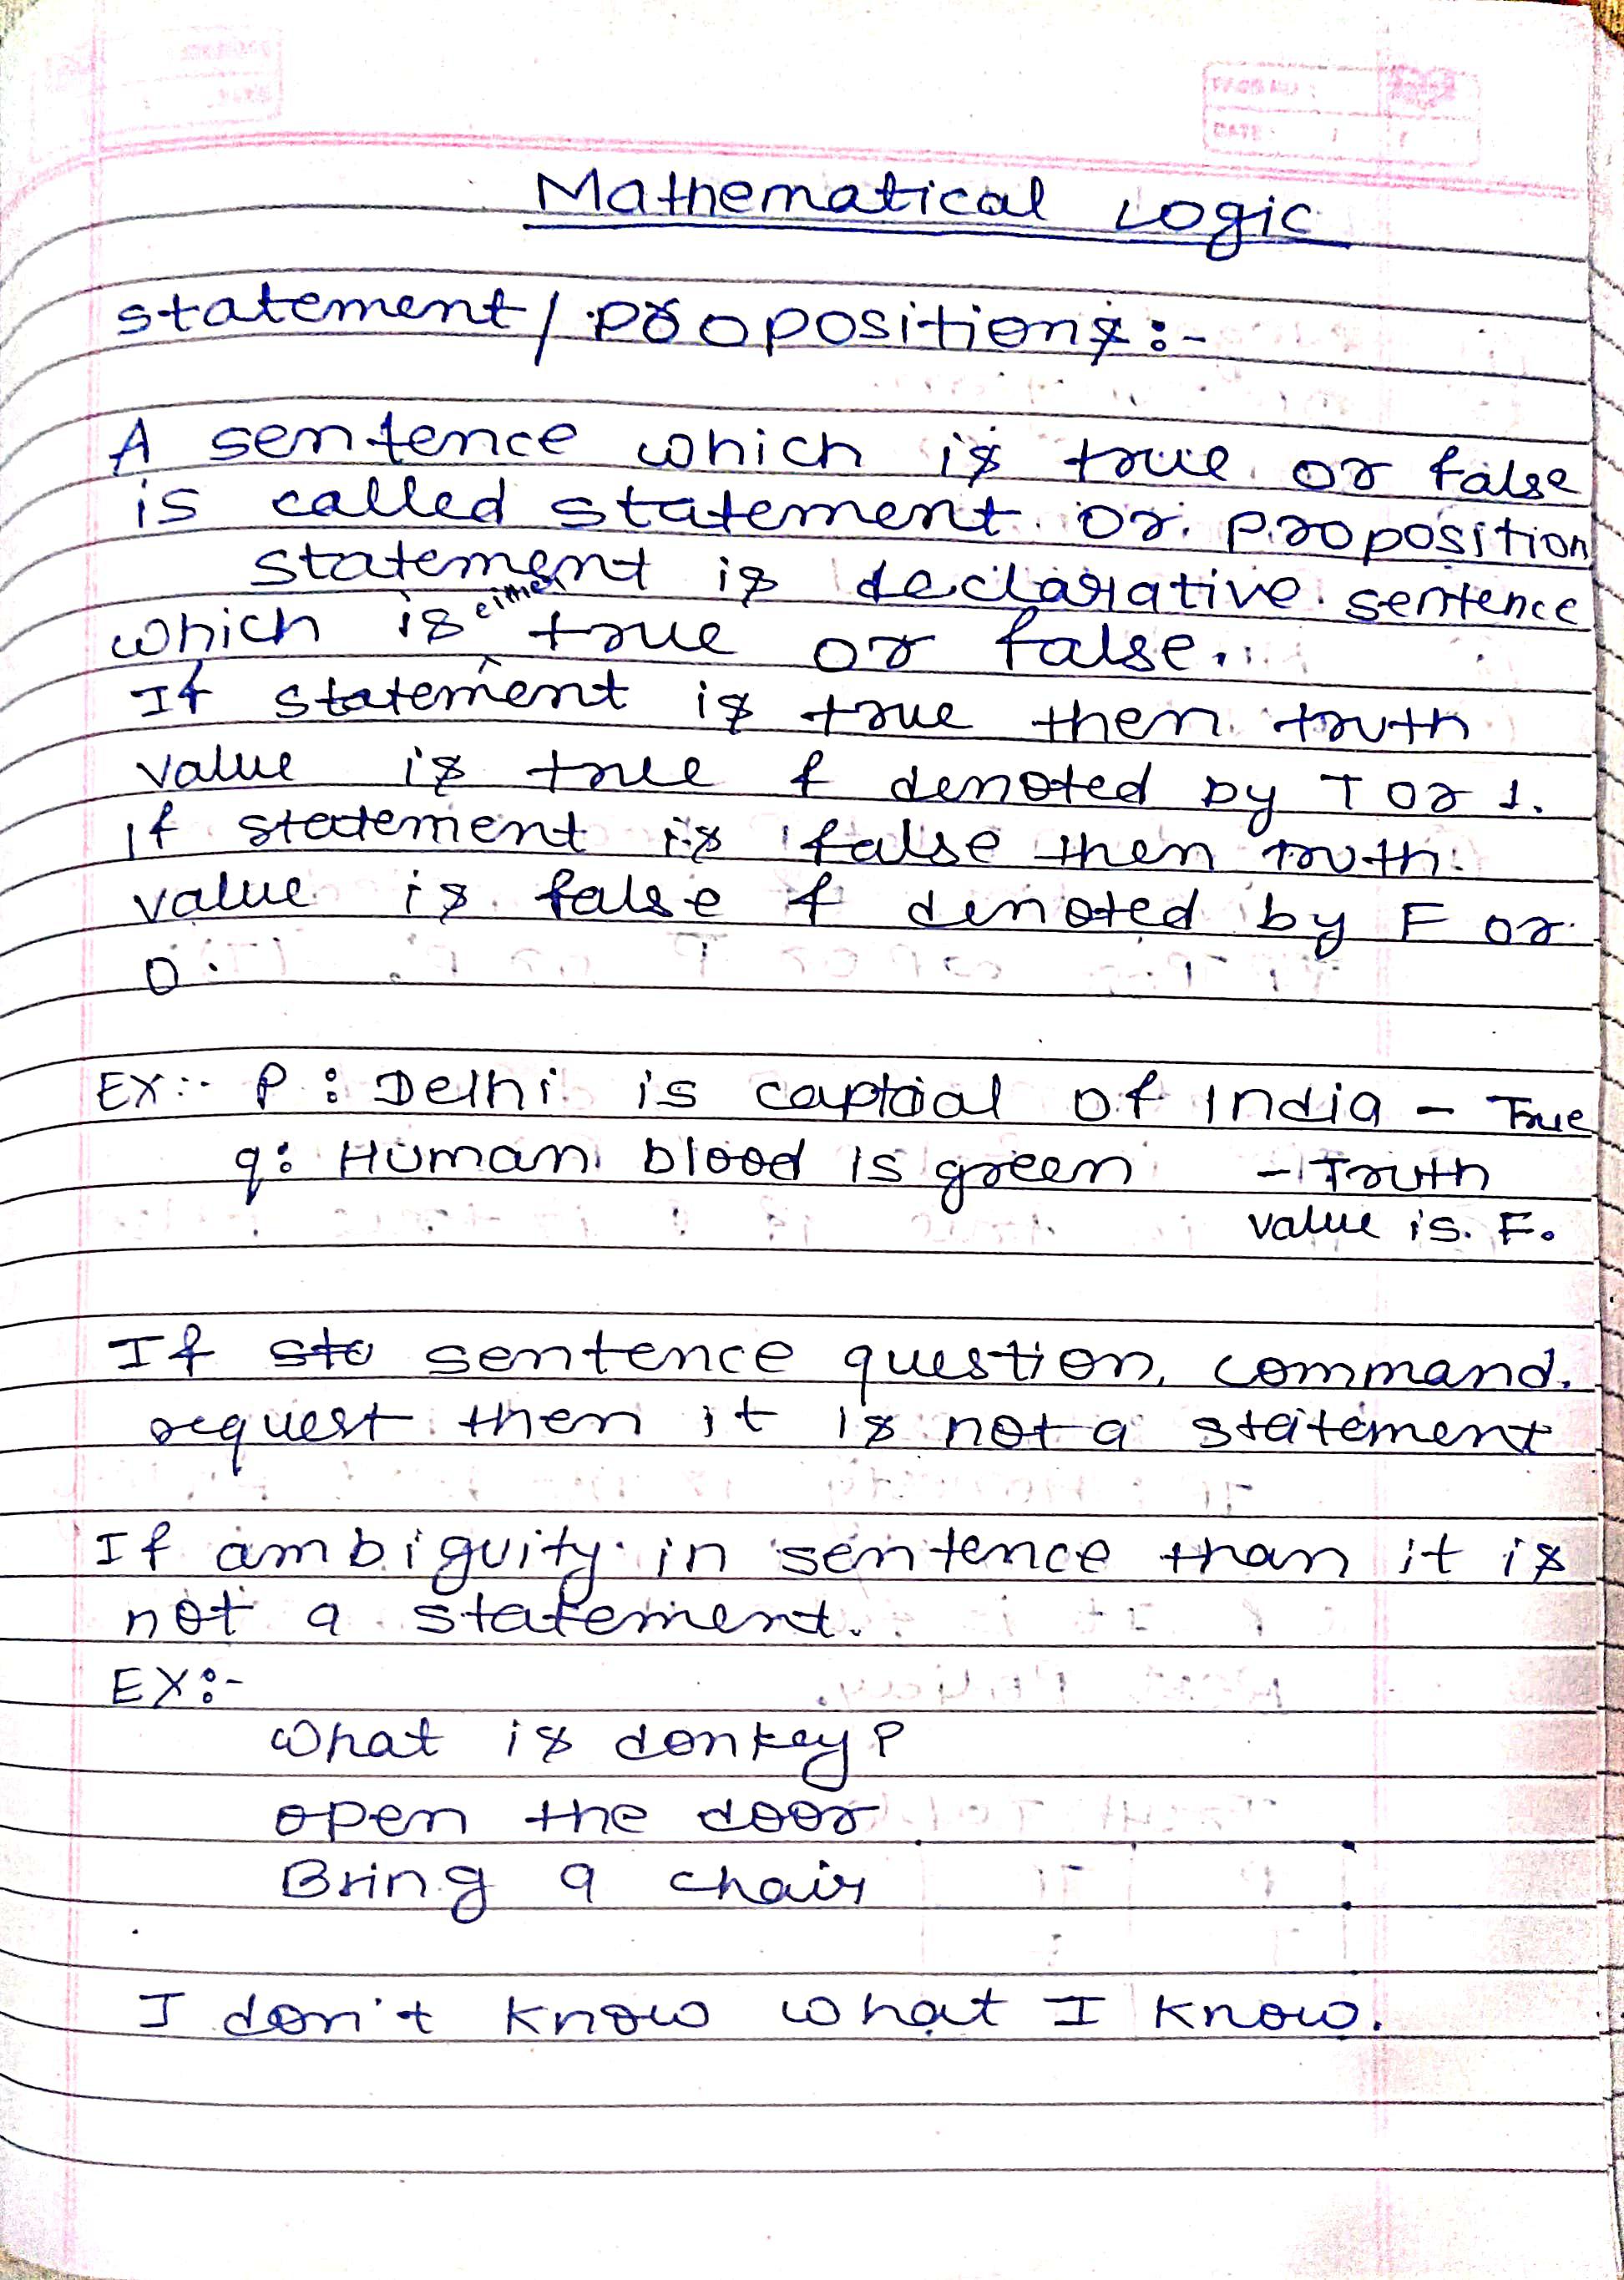 Mathematical Logic
statement / propositions :-
A sentence which is true or false
is called statement or proposition
statement is declarative sentence
which is either true or false.
If statement is true then truth
value is true & denoted by T or 1.
if statement is false then truth
value is false & denoted by F or
0.
EX:- P : Delhi is captial of India - True
q: Human blood is green - Truth
value is F.
If sta sentence question, command.
request then it is not a statement
If ambiguity in sentence than it is
not a statement.
EX:-
What is donkey?
open the door
Bring a chair
I don't know what I know.